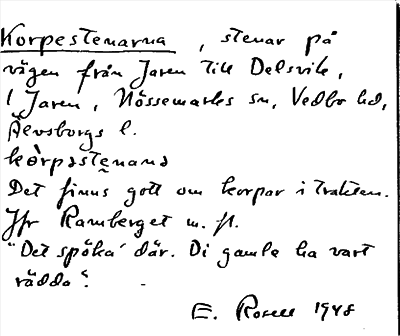 Korpestenarna, stenar på
vägen från Jaren till Delsvik,
i Jaren, Nössemarks sn, Vedbo hd,
Älvsborgs l.
kòrpəstenanə
Det finns gott om korpar i trakten.
Jfr Ramberget m. fl.
"Det spöka' där. Di gamle ha vart
rädda".
E. Rosell 1948